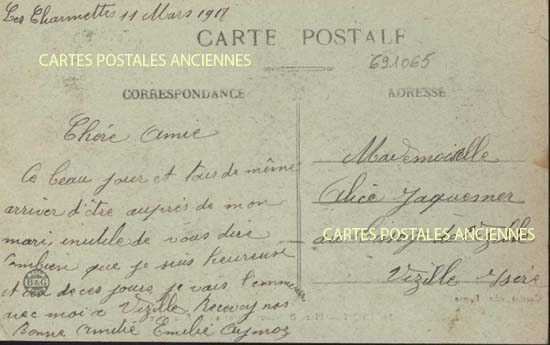 Les Charmettes 11 Mars 191
CARTE POSTALE
CARTES POSTALES ANCIENNES
691065
CORRESPONDANCE
ADRESSE
Chére Amie
Ce beau jour et tous de même
arriver d'être auprès de mon
mari, inutile de vous dire
Combien que je suis heureuse
et de ces jours je vais l'emmener
avec moi a Vizille Recevez nos
Bonne Amitié Emilie
Mademoiselle
Alice Jaquemer
CARTES POSTALES ANCIENNES
Vizille
Vizille Isère
B&G